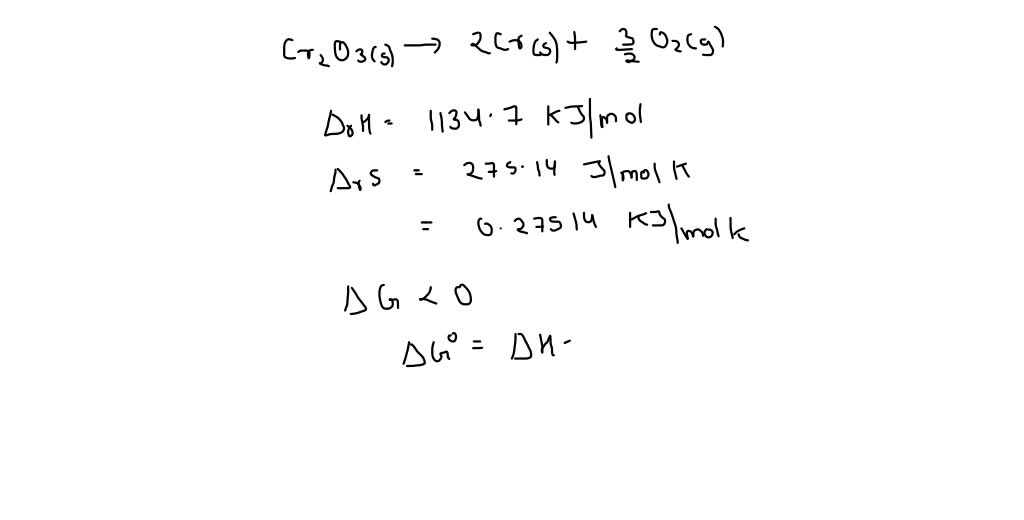 Cr₂O₃(s) → 2Cr(s) + 3/2 O₂(g)
ΔᵣH = 1134.7 KJ/mol
ΔᵣS = 275.14 J/mol K
= 0.27514 KJ/mol k
ΔG < 0
ΔG° = ΔH -